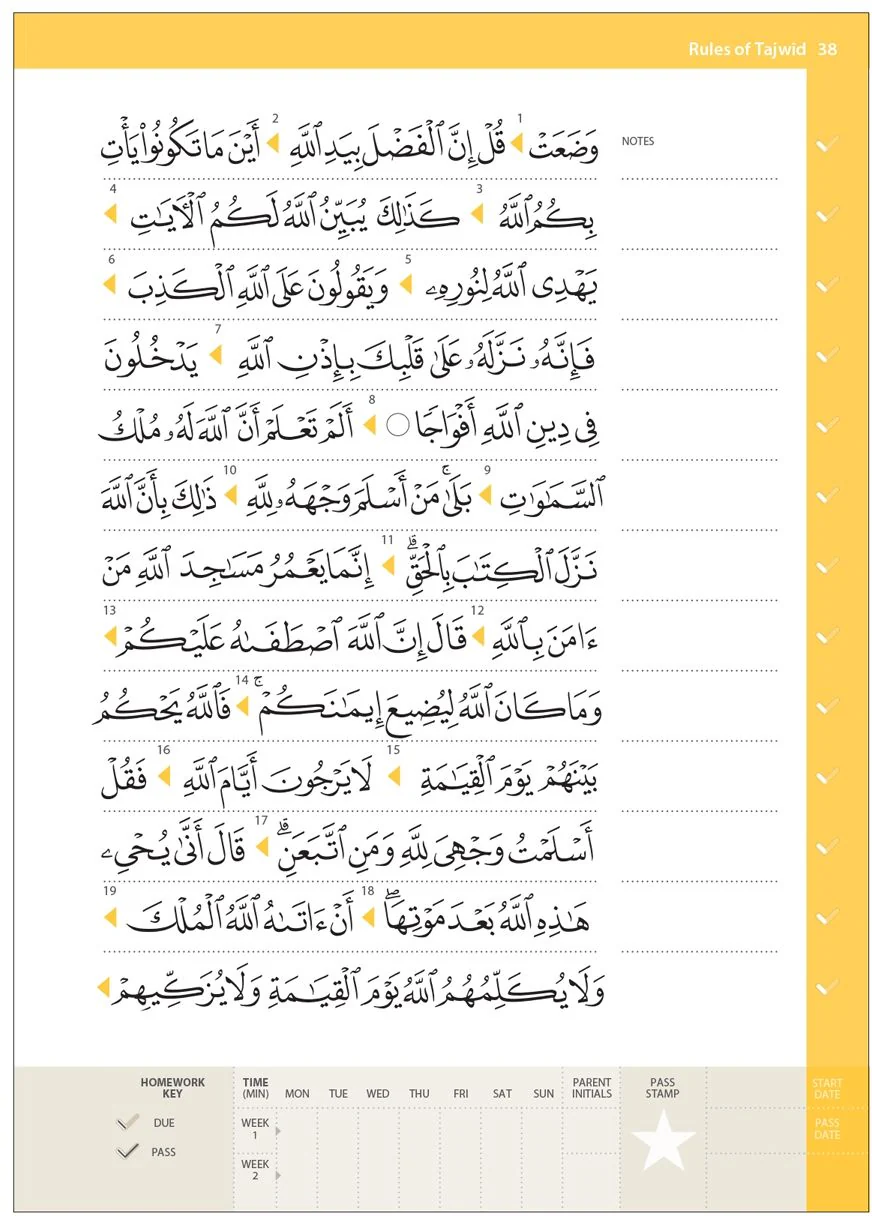 Rules of Tajwid 38
NOTES
وَضَعَتْ ◀ 1 قُلْ إِنَّ ٱلْفَضْلَ بِيَدِ ٱللَّهِ ◀ 2 أَيْنَ مَا تَكُونُوا۟ يَأْتِ
بِكُمُ ٱللَّهُ ◀ 3 كَذَٰلِكَ يُبَيِّنُ ٱللَّهُ لَكُمُ ٱلْءَايَـٰتِ ◀ 4
يَهْدِى ٱللَّهُ لِنُورِهِۦ ◀ 5 وَيَقُولُونَ عَلَى ٱللَّهِ ٱلْكَذِبَ ◀ 6
فَإِنَّهُۥ نَزَّلَهُۥ عَلَىٰ قَلْبِكَ بِإِذْنِ ٱللَّهِ ◀ 7 يَدْخُلُونَ
فِى دِينِ ٱللَّهِ أَفْوَاجًا ○ ◀ 8 أَلَمْ تَعْلَمْ أَنَّ ٱللَّهَ لَهُۥ مُلْكُ
ٱلسَّمَـٰوَٰتِ ◀ 9 بَلَىٰ ۚ مَنْ أَسْلَمَ وَجْهَهُۥ لِلَّهِ ◀ 10 ذَٰلِكَ بِأَنَّ ٱللَّهَ
نَزَّلَ ٱلْكِتَـٰبَ بِٱلْحَقِّ ۗ ◀ 11 إِنَّمَا يَعْمُرُ مَسَـٰجِدَ ٱللَّهِ مَنْ
ءَامَنَ بِٱللَّهِ ◀ 12 قَالَ إِنَّ ٱللَّهَ ٱصْطَفَىٰهُ عَلَيْكُمْ ◀ 13
وَمَا كَانَ ٱللَّهُ لِيُضِيعَ إِيمَـٰنَكُمْ ۚ ◀ 14 فَٱللَّهُ يَحْكُمُ
بَيْنَهُمْ يَوْمَ ٱلْقِيَـٰمَةِ ◀ 15 لَا يَرْجُونَ أَيَّامَ ٱللَّهِ ◀ 16 فَقُلْ
أَسْلَمْتُ وَجْهِىَ لِلَّهِ وَمَنِ ٱتَّبَعَنِ ۗ ◀ 17 قَالَ أَنَّىٰ يُحْىِۦ
هَـٰذِهِ ٱللَّهُ بَعْدَ مَوْتِهَا ۖ ◀ 18 أَنْ ءَاتَىٰهُ ٱللَّهُ ٱلْمُلْكَ ◀ 19
وَلَا يُكَلِّمُهُمُ ٱللَّهُ يَوْمَ ٱلْقِيَـٰمَةِ وَلَا يُزَكِّيهِمْ ◀
HOMEWORK KEY
DUE
PASS
TIME (MIN) MON TUE WED THU FRI SAT SUN PARENT INITIALS PASS STAMP START DATE
WEEK 1
PASS DATE
WEEK 2